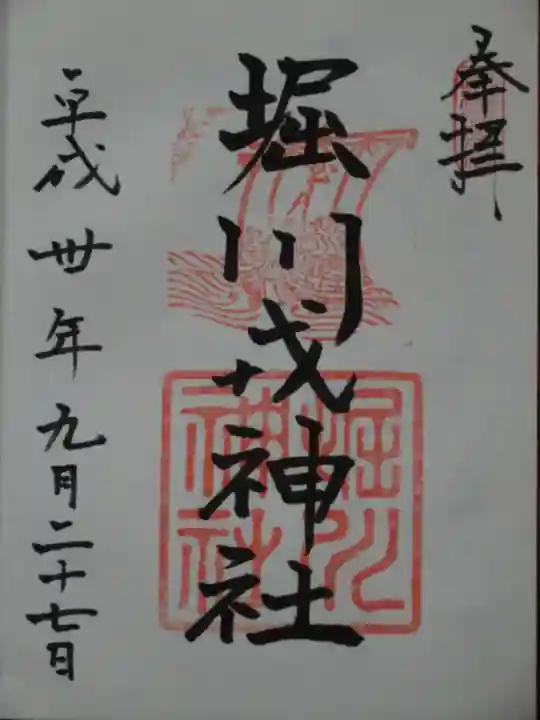 奉拝
堀川戎神社
平成卅年九月二十七日